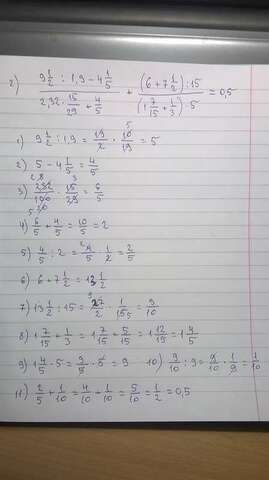 2) (9 1/2 : 1,9 - 4 1/5) / (2,32 · 15/29 + 4/5) + ((6 + 7 1/2) : 15) / ((1 7/15 + 1/3) · 5) = 0,5
1) 9 1/2 : 1,9 = 19/2 · 10/19 = 5
2) 5 - 4 1/5 = 4/5
3) 232/100 · 15/29 = 6/5
4) 6/5 + 4/5 = 10/5 = 2
5) 4/5 : 2 = 4/5 · 1/2 = 2/5
6) 6 + 7 1/2 = 13 1/2
7) 13 1/2 : 15 = 27/2 · 1/15 = 9/10
8) 1 7/15 + 1/3 = 1 7/15 + 5/15 = 1 12/15 = 1 4/5
9) 1 4/5 · 5 = 9/5 · 5 = 9 10) 9/10 : 9 = 9/10 · 1/9 = 1/10
11) 2/5 + 1/10 = 4/10 + 1/10 = 5/10 = 1/2 = 0,5